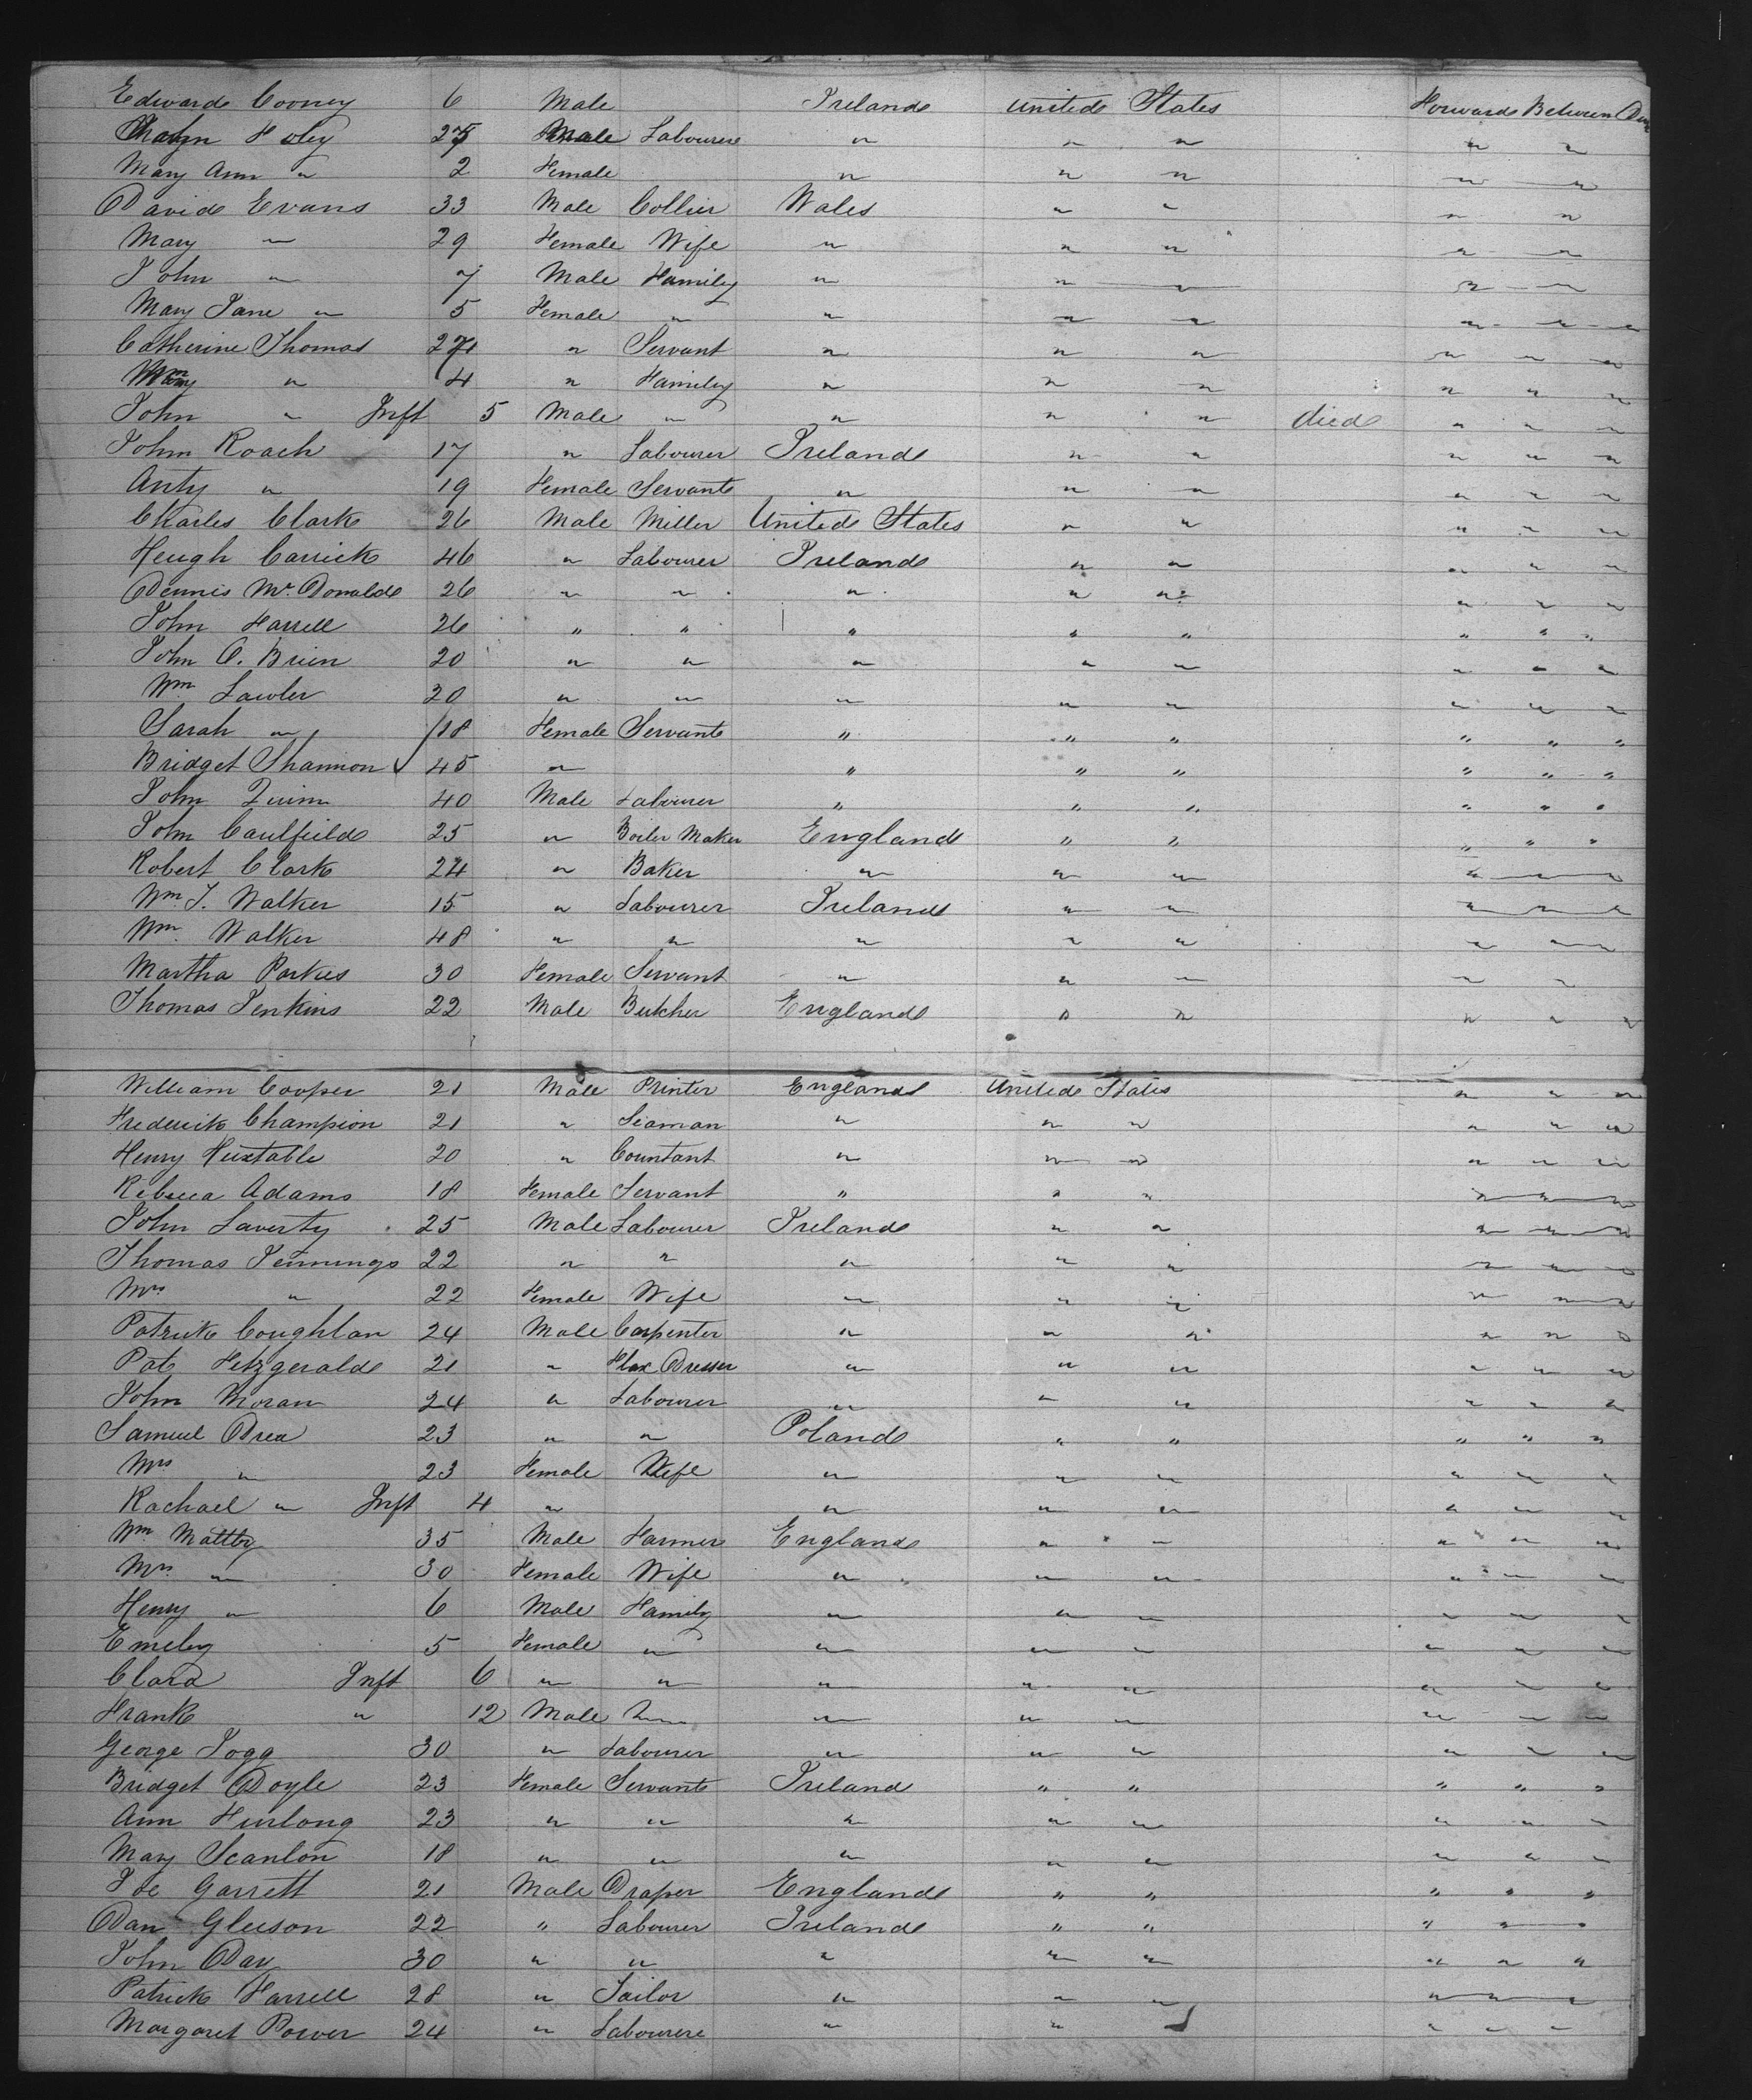 Edward Cooney 6 Male Ireland United States Forward Between
Holey 25 Male Labourer " " " " "
Mary Ann " 2 Female " " " " "
David Evans 33 Male Collier Wales " " " "
Mary " 29 Female Wife " " " " "
John " 7 Male Family " " " " "
Mary Jane " 5 Female " " " " " " "
Catherine Thomas 27 " Servant " " " " " "
" 4 " Family " " " " " "
John " Inft 5 Male " " " " died " " "
John Roach 17 " Labourer Ireland " " " " "
Anty " 19 Female Servant " " " " " "
Charles Clark 26 Male Miller United States " " " " "
Heugh Carrick 46 " Labourer Ireland " " " " "
Dennis Mc Donald 26 " " " " " " " "
John Farrell 26 " " " " " " " "
John O. Brien 20 " " " " " " " "
Wm Lawler 20 " " " " " " " "
Sarah " 18 Female Servant " " " " " "
Bridget Shannon 45 " " " " " " "
John Quinn 40 Male Labourer " " " " " "
John Caulfield 25 " Boiler Maker England " " " " "
Robert Clark 24 " Baker " " " " " "
Wm J. Walker 15 " Labourer Ireland " " " " "
Wm Walker 48 " " " " " " " "
Martha Parkes 30 Female Servant " " " " "
Thomas Jenkins 22 Male Butcher England " " " " "
William Cooper 21 Male Printer England United States " " "
Frederick Champion 21 " Seaman " " " " " "
Henry Huxtable 20 " Countant " " " " " "
Rebecca Adams 18 Female Servant " " " " " "
John Laverty 25 Male Labourer Ireland " " " " "
Thomas Jennings 22 " " " " " " " "
Mrs " 22 Female Wife " " " " " "
Patrick Coughlan 24 Male Carpenter " " " " " "
Pat Fitzgerald 21 " Flax Dresser " " " " " "
John Moran 24 " Labourer " " " " " "
Samuel Drea 23 " " Poland " " " " "
Mrs " 23 Female Wife " " " " " "
Rachael " Inft 4 " " " " " " "
Wm Maltby 35 Male Farmer England " " " " "
Mrs " 30 Female Wife " " " " " "
Henry " 6 Male Family " " " " " "
Emeley 5 Female " " " " " " "
Clara Inft 6 " " " " " " " "
Frank " 12 Male " " " " " " "
George Togg 30 " Labourer " " " " " "
Bridget Doyle 23 Female Servant Ireland " " " " "
Ann Furlong 23 " " " " " " " "
Mary Scanlon 18 " " " " " " " "
Joe Garrett 21 Male Draper England " " " " "
Dan Gleeson 22 " Labourer Ireland " " " " "
John Day 30 " " " " " " " "
Patrick Farrell 28 " Tailor " " " " " "
Margaret Power 24 " Labourere " " " " " "